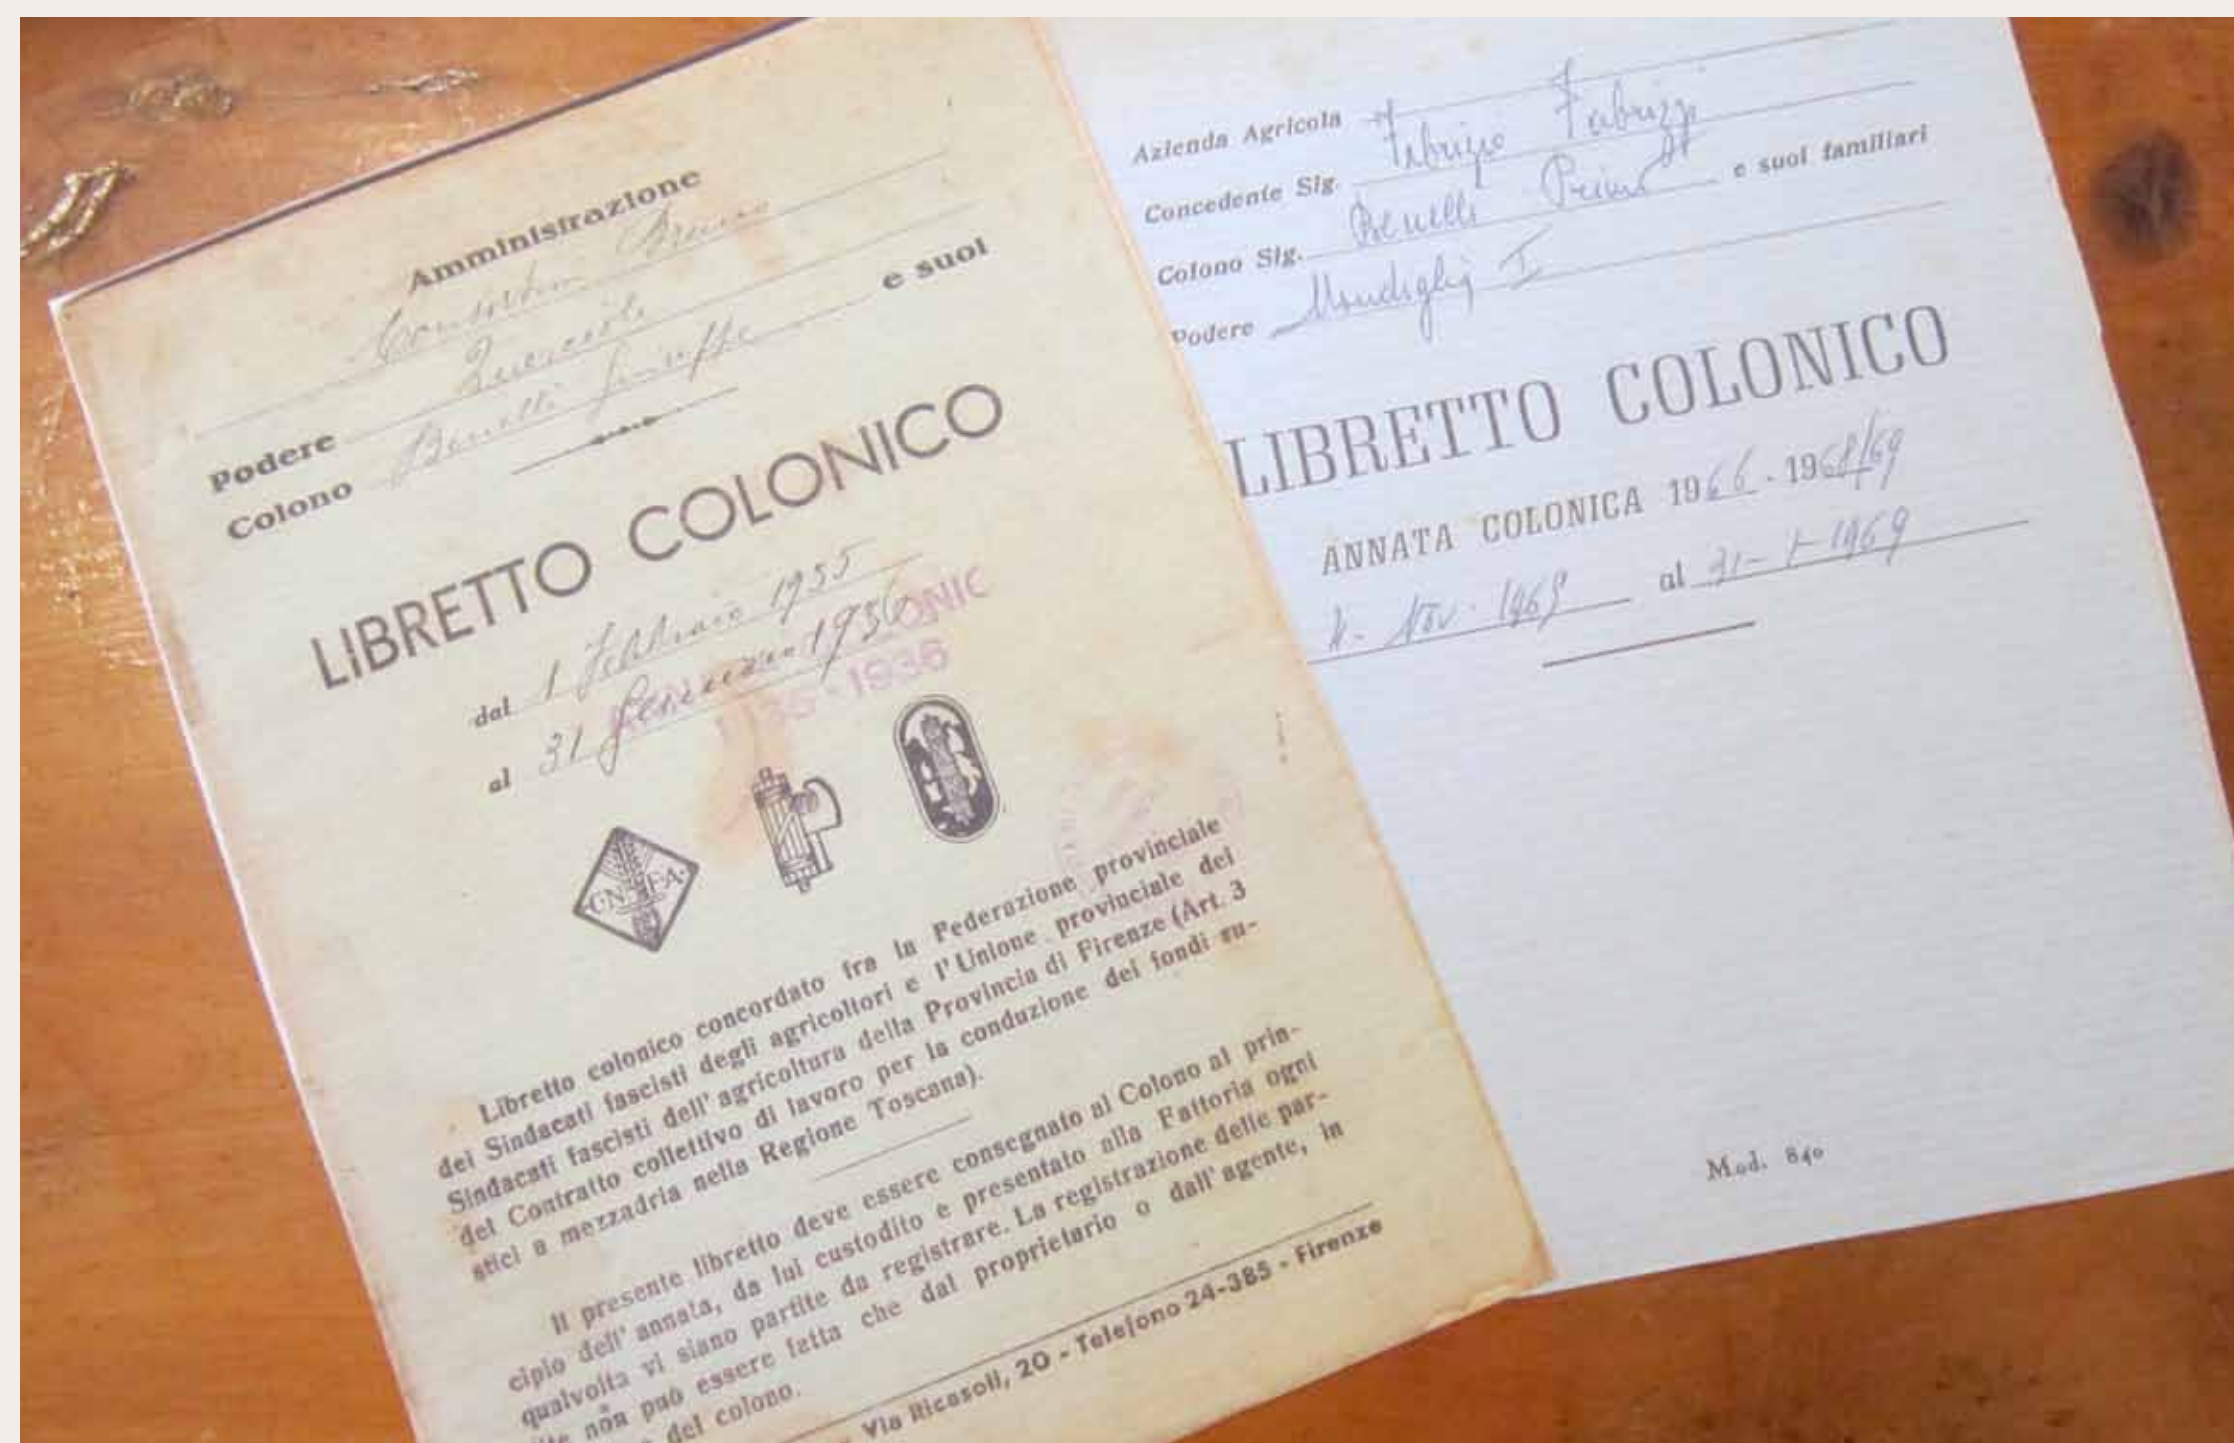 Amministrazione
Bruno
Podere Querceto e suoi
Colono Benelli Giuseppe
LIBRETTO COLONICO
dal 1 Febbraio 1935
al 31 Gennaio 1936
ONIC
35-1936
C.N.F.A.
Libretto colonico concordato fra la Federazione provinciale
dei Sindacati fascisti degli agricoltori e l'Unione provinciale dei
Sindacati fascisti dell'agricoltura della Provincia di Firenze (Art. 3
del Contratto collettivo di lavoro per la conduzione dei fondi ru-
stici a mezzadria nella Regione Toscana).
Il presente libretto deve essere consegnato al Colono al prin-
cipio dell'annata, da lui custodito e presentato alla Fattoria ogni
qualvolta vi siano partite da registrare. La registrazione delle par-
tite non può essere fatta che dal proprietario o dall'agente, in
del colono.
Via Ricasoli, 20 - Telefono 24-385 - Firenze
Azienda Agricola
Concedente Sig. Fabrizio Fabrizzi
Colono Sig. Benelli Primo e suoi familiari
Podere Mondiglia I
LIBRETTO COLONICO
ANNATA COLONICA 1966 - 1968/69
Nov. 1965 al 31-1-1969
Mod. 840